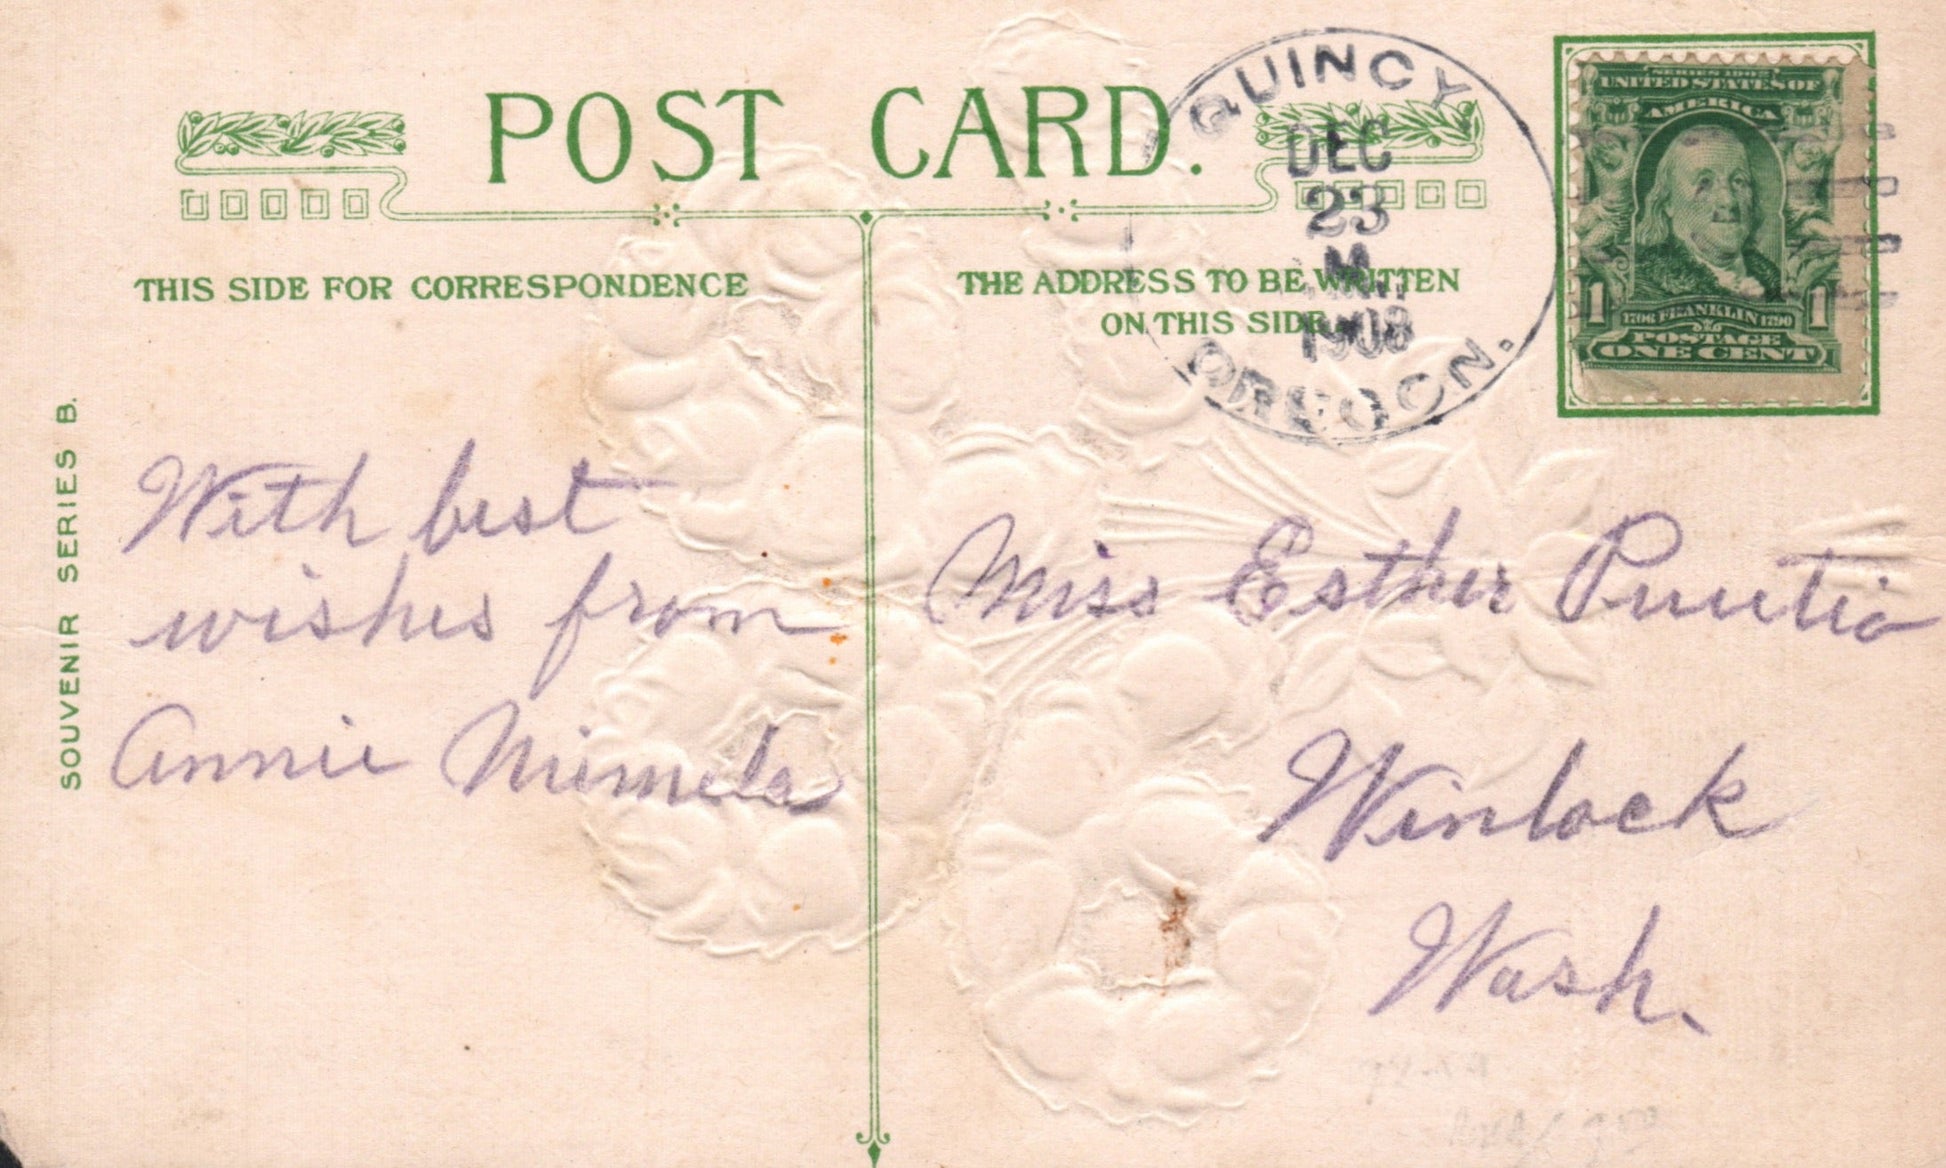 POST CARD.
QUINCY
DEC
23
M
1908
OREGON.
SERIES 1902
UNITED STATES OF
AMERICA
1706 FRANKLIN 1790
1 1
POSTAGE
ONE CENT
THIS SIDE FOR CORRESPONDENCE
THE ADDRESS TO BE WRITTEN
ON THIS SIDE
SOUVENIR SERIES B.
With best
wishes from
Annie
Miss Esther
Winlock
Wash.